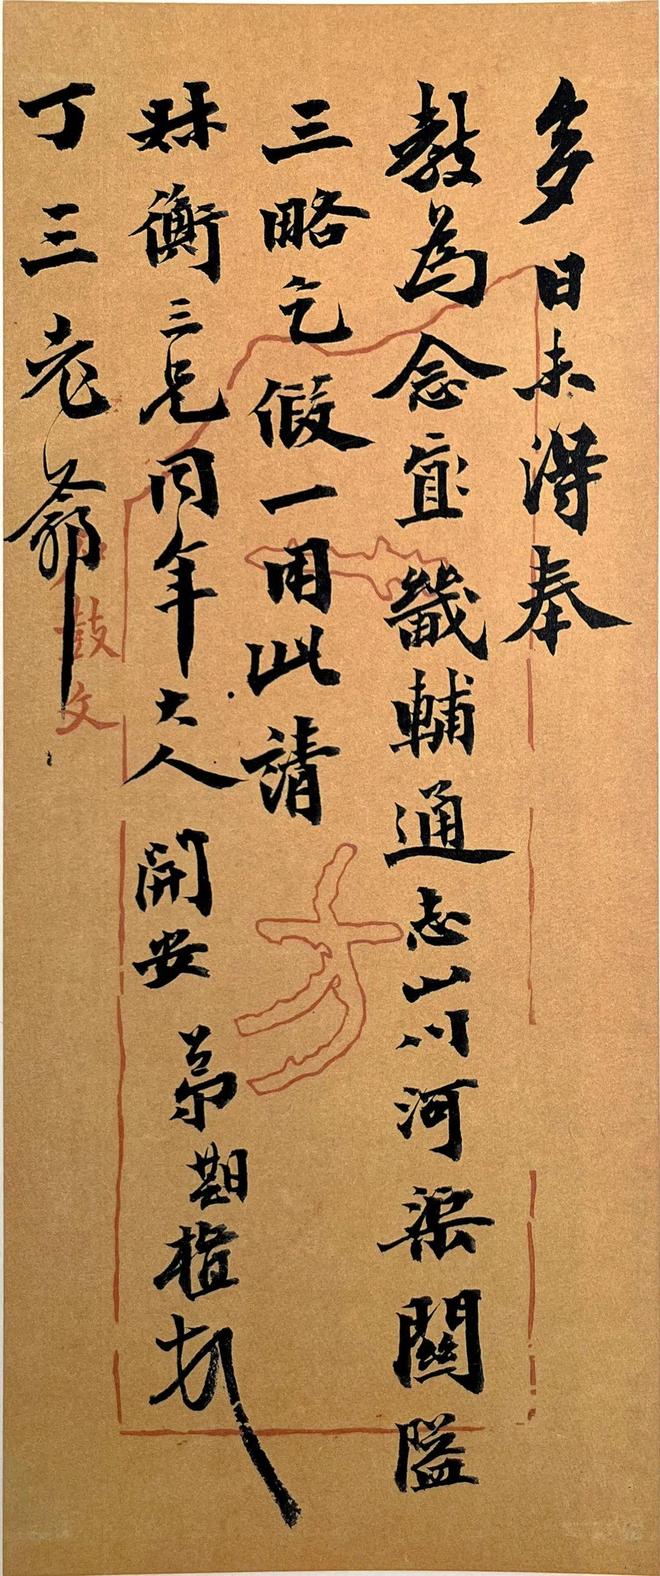 多日未得奉
教為念畿輔通志山川河渠關隘
三略乞假一用此請
衡三兄同年大人 開安 弟期
丁三老爺
鼓文